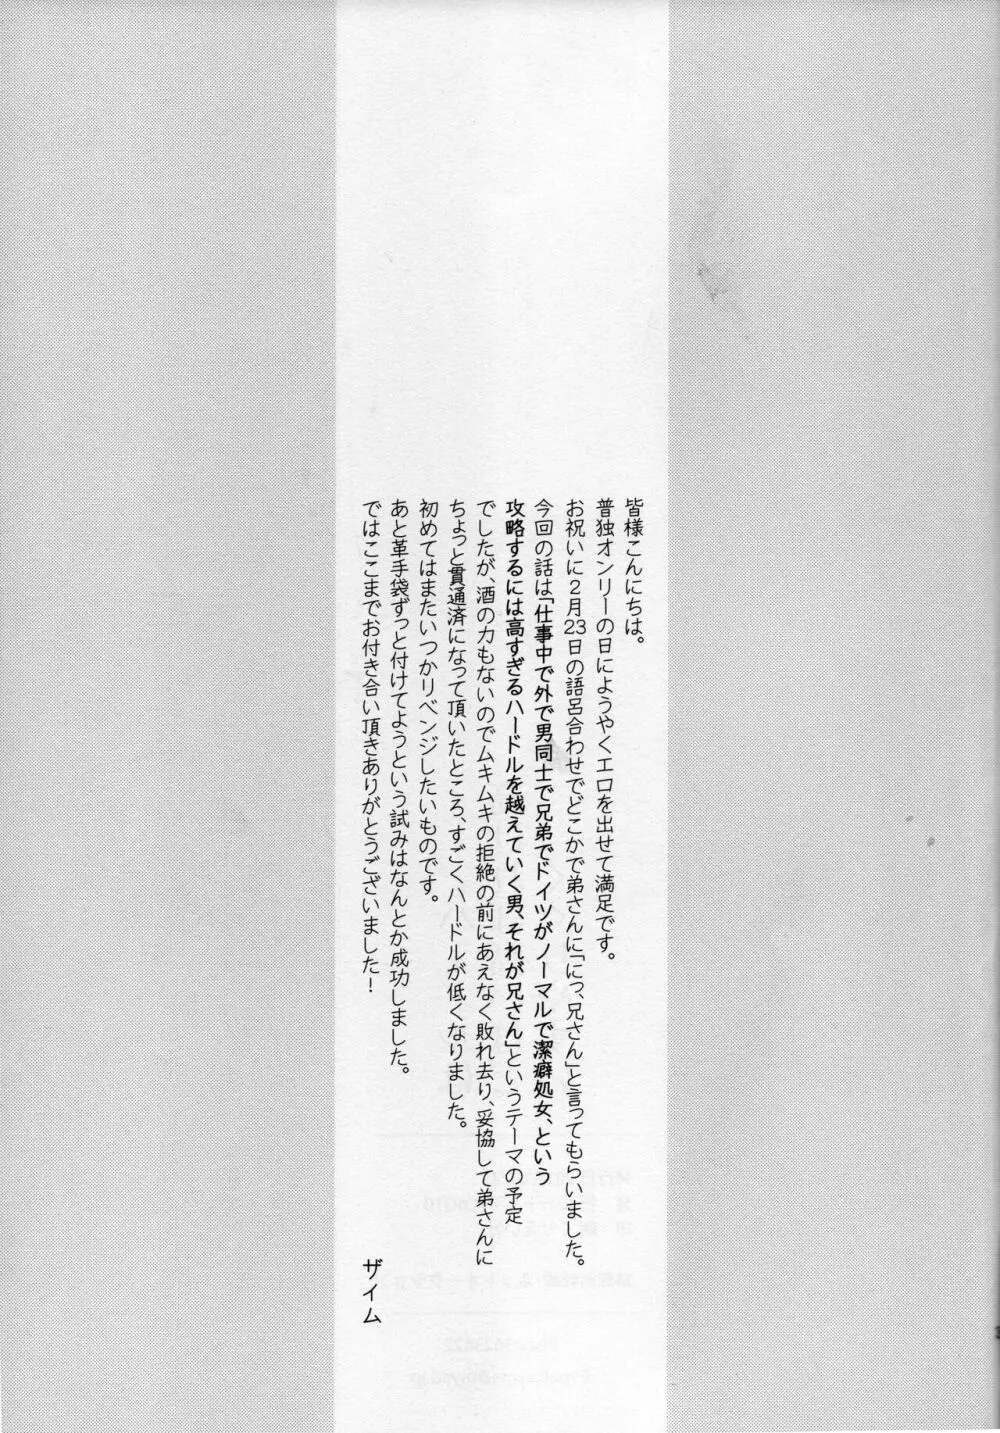 皆様こんにちは。
普独オンリーの日にようやくエロを出せて満足です。
お祝いに2月23日の語呂合わせでどこかで弟さんに「にっ、兄さん」と言ってもらいました。
今回の話は「仕事中で外で男同士で兄弟でドイツがノーマルで潔癖処女、という
攻略するには高すぎるハードルを越えていく男、それが兄さん」というテーマの予定
でしたが、酒の力もないのでムキムキの拒絶の前にあえなく敗れ去り、妥協して弟さんに
ちょっと貫通済になって頂いたところ、すごくハードルが低くなりました。
初めてはまたいつかリベンジしたいものです。
あと革手袋ずっと付けてようという試みはなんとか成功しました。
ではここまでお付き合い頂きありがとうございました！
ザイム